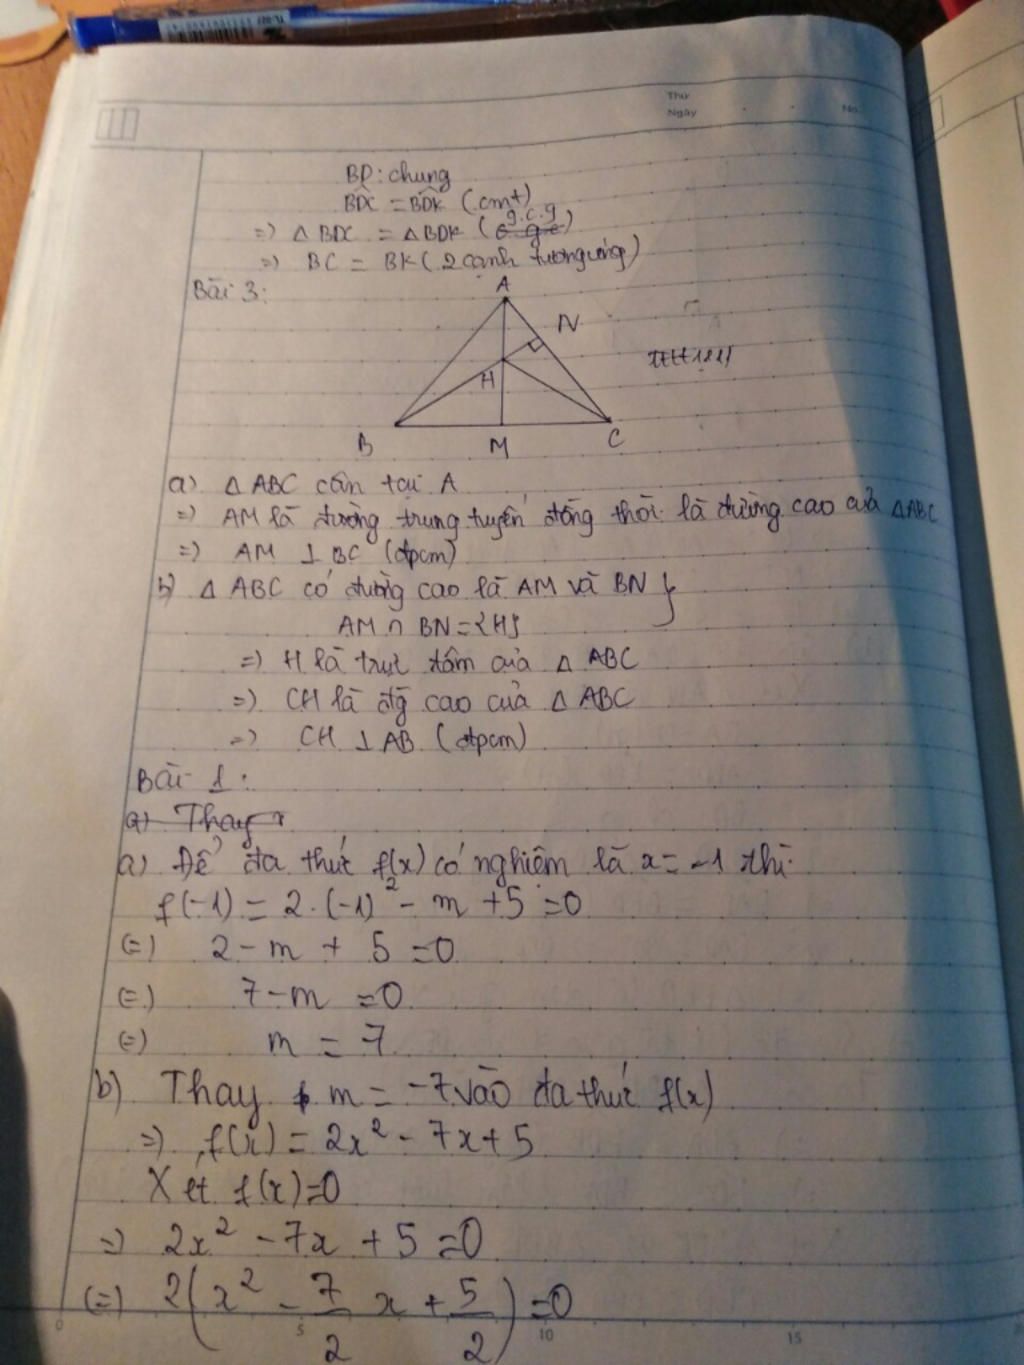 Thứ
Ngày
No.
BD: chung
BDC = BDK (cmt)
g.c.g
=) Δ BDC = Δ BDK ( )
=) BC = BK ( 2 cạnh tương ứng)
Bài 3:
A
N
H
B
M
C
a) Δ ABC cân tại A
=) AM là đường trung tuyến đồng thời là đường cao của Δ ABC
=) AM ⊥ BC (đpcm)
b) Δ ABC có đường cao là AM và BN }
AM ∩ BN = {H}
=) H là trực tâm của Δ ABC
=) CH là đg cao của Δ ABC
=) CH ⊥ AB (đpcm)
Bài 1:
a) Thay
a) Để đa thức f(x) có nghiệm là x = -1 thì
f(-1) = 2.(-1)² - m + 5 = 0
(=) 2 - m + 5 = 0
(=) 7 - m = 0
(=) m = 7
b) Thay m = -7 vào đa thức f(x)
=) f(x) = 2x² - 7x + 5
Xét f(x) = 0
=) 2x² - 7x + 5 = 0
(=) 2(x² - 7/2 x + 5/2) = 0
0 5 10 15